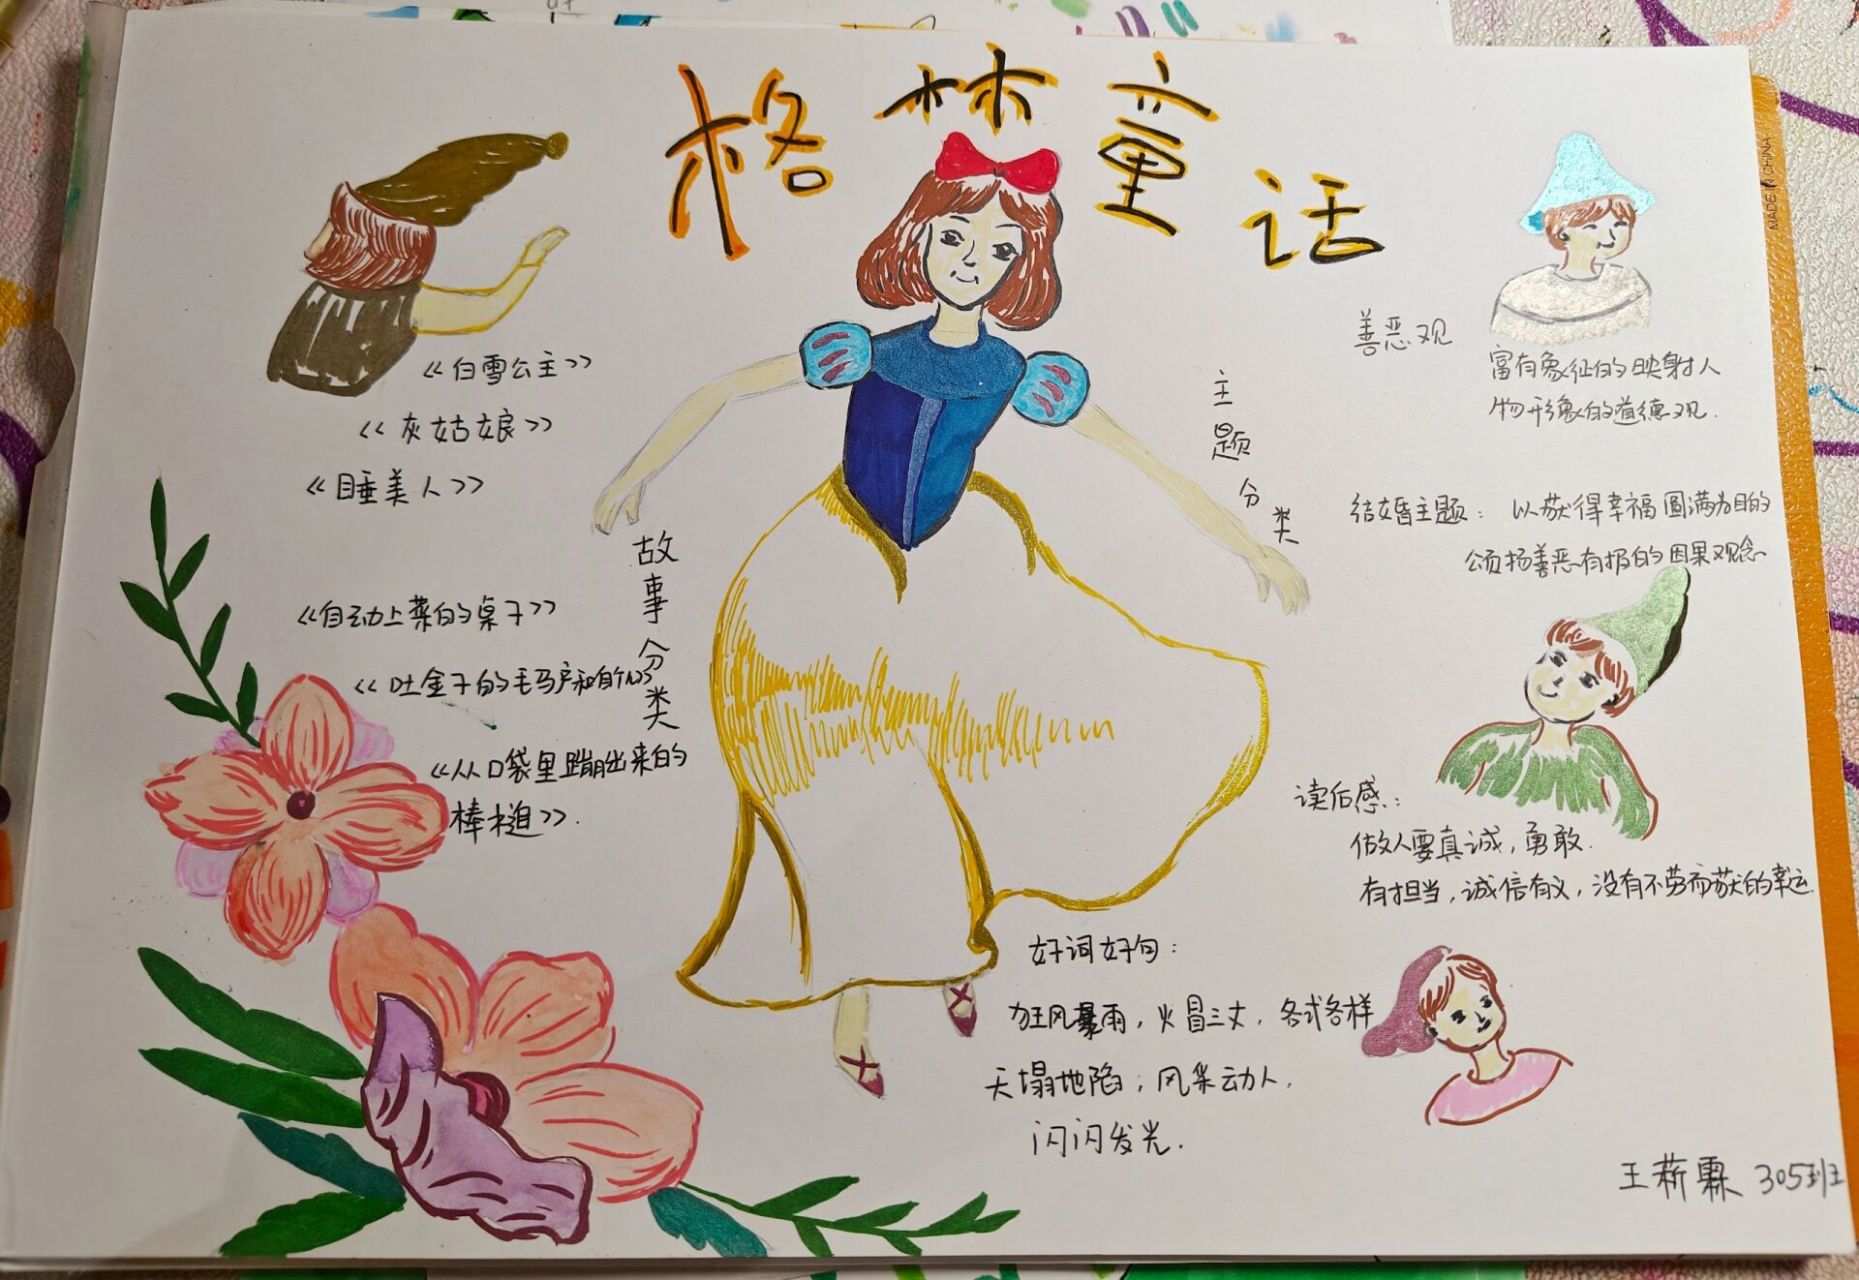 格林童话
《白雪公主》
《灰姑娘》
《睡美人》
故事分类
《自动上菜的桌子》
《吐金子的毛驴和自们》
《从口袋里蹦出来的
棒槌》.
主题分类
善恶观
富有象征的映射人
物形象的道德观.
结婚主题: 以获得幸福圆满为目的
颂扬善恶有报的因果观念
读后感:
做人要真诚,勇敢.
有担当,诚信有义,没有不劳而获的幸运.
好词好句:
狂风暴雨,火冒三丈,各式各样
天塌地陷;风采动人,
闪闪发光.
王薪霖 305班
MADE IN CHINA